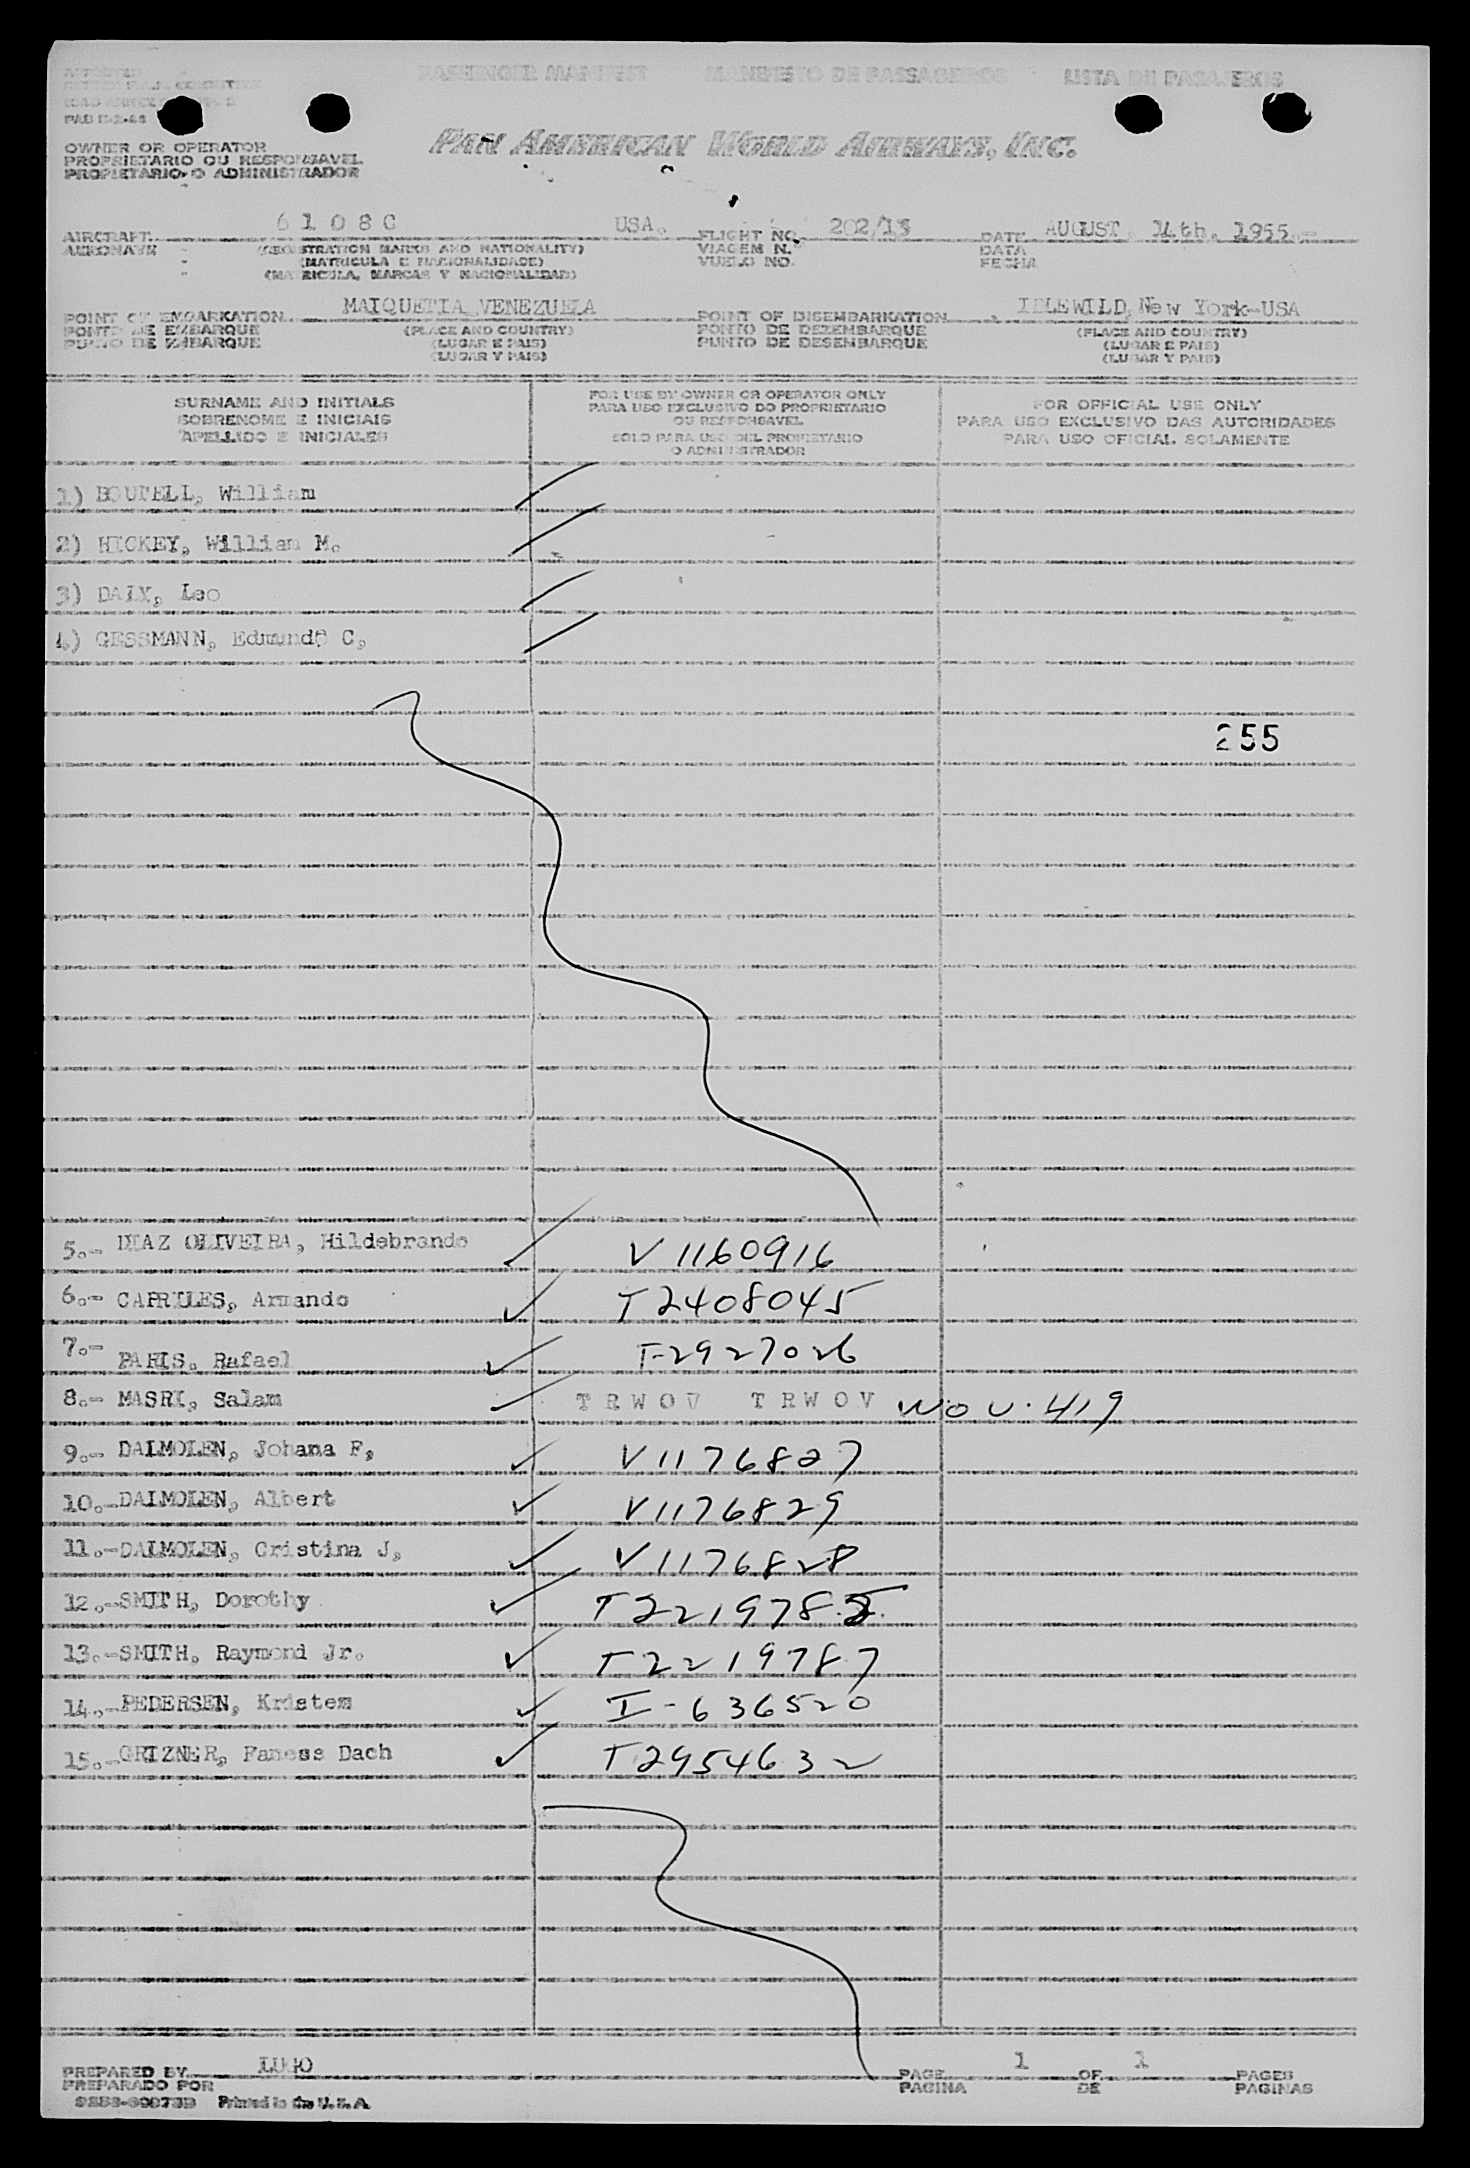 PASSENGER MANIFEST MANIFESTO DE PASSAGEIROS LISTA DE PASAJEROS
OWNER OR OPERATOR
PROPRIETARIO OU RESPONSAVEL
PROPIETARIO O ADMINISTRADOR
PAN AMERICAN WORLD AIRWAYS, INC.
AIRCRAFT 6108C USA. FLIGHT NO. 202/13 DATE AUGUST 14th. 1955.-
AERONAVE (REGISTRATION MARKS AND NATIONALITY) VIAGEM N. DATA
(MATRICULA E NACIONALIDADE) VUELO NO. FECHA
(MATRICULA, MARCAS Y NACIONALIDAD)
POINT OF EMBARKATION MAIQUETIA VENEZUELA POINT OF DISEMBARKATION IDLEWILD, New York-USA
PONTO DE EMBARQUE (PLACE AND COUNTRY) PONTO DE DEZEMBARQUE (PLACE AND COUNTRY)
PUNTO DE EMBARQUE (LUGAR E PAIS) PUNTO DE DESEMBARQUE (LUGAR E PAIS)
(LUGAR Y PAIS) (LUGAR Y PAIS)
SURNAME AND INITIALS
SOBRENOME E INICIAIS
APELLIDO E INICIALES
FOR USE BY OWNER OR OPERATOR ONLY
PARA USO EXCLUSIVO DO PROPRIETARIO
OU RESPONSAVEL
SOLO PARA USO DEL PROPIETARIO
O ADMINISTRADOR
FOR OFFICIAL USE ONLY
PARA USO EXCLUSIVO DAS AUTORIDADES
PARA USO OFICIAL SOLAMENTE
1) BOUTELL, William
2) HICKEY, William M.
3) DALY, Leo
4) GESSMANN, Edmund C,
255
5.- DIAZ OLIVEIRA, Hildebrando V 1160916
6.- CAPRILES, Armando T2408045
7.- PARIS. Rafael T-2927026
8.- MASRI, Salam TRWOV TRWOV WOV. 419
9.- DALMOLEN, Johana F, V1176827
10.-DALMOLEN, Albert V1176829
11.-DALMOLEN, Cristina J, V1176828
12.-SMITH, Dorothy T221978
13.-SMITH, Raymond Jr. T2219787
14.-PEDERSEN, Kristem I-636520
15.-GRIZNER, Faness Dach T2954632
PREPARED BY LUGO PAGE 1 OF 1 PAGES
PREPARADO POR PAGINA DE PAGINAS
Printed in the U.S.A.